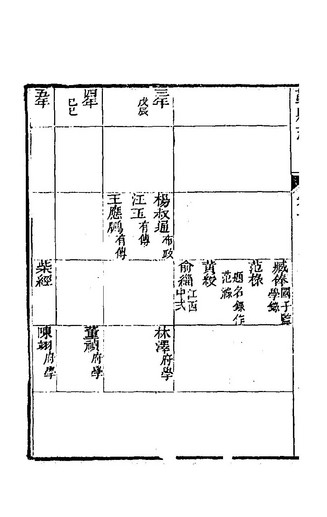 臧倳國子監學錄
范祿題名錄作范淥
黃綬
俞緇江西中式
三年戊辰
楊叔通布政
江玉有傳
王應鵬有傳
林澤府學
四年己巳
董禎府學
五年
柴經
陳翊府學